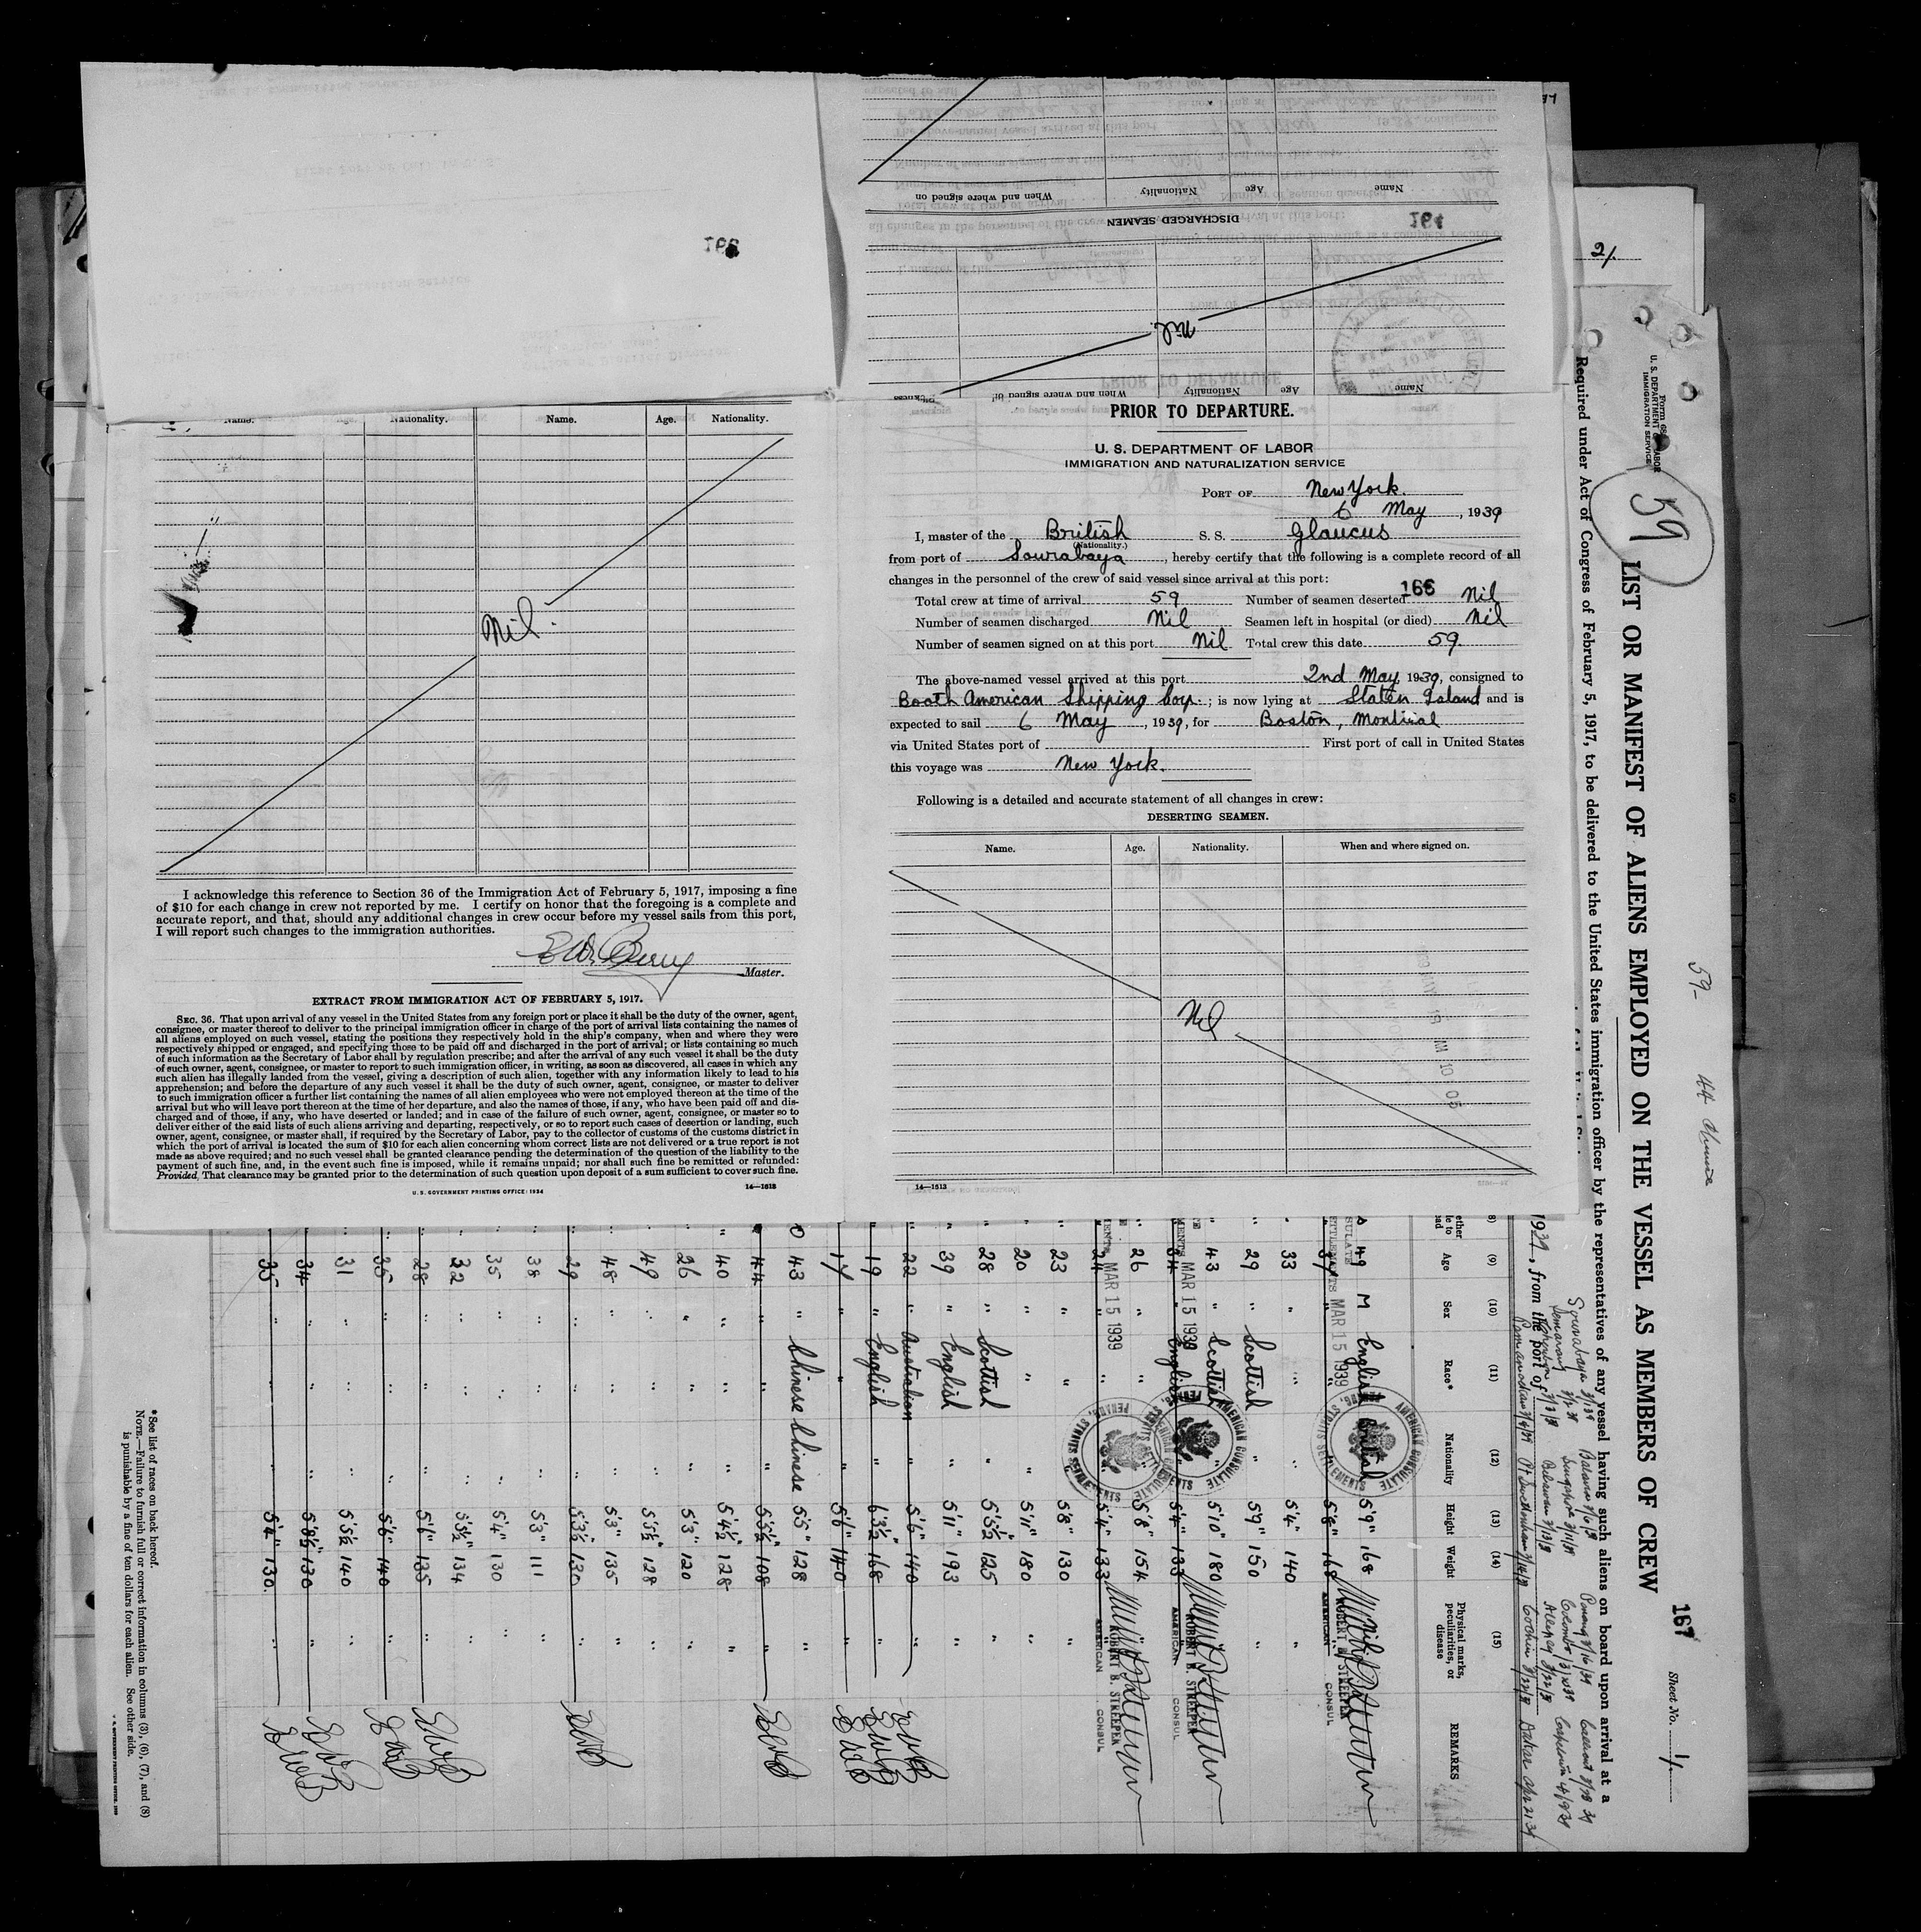 PRIOR TO DEPARTURE.
U. S. DEPARTMENT OF LABOR
IMMIGRATION AND NATURALIZATION SERVICE
PORT OF New York.
6 May, 1939
I, master of the British S. S. Glaucus
(Nationality.)
from port of Sourabaya, hereby certify that the following is a complete record of all
changes in the personnel of the crew of said vessel since arrival at this port:
166
Total crew at time of arrival 59 Number of seamen deserted Nil
Number of seamen discharged Nil Seamen left in hospital (or died) Nil
Number of seamen signed on at this port Nil Total crew this date 59.
The above-named vessel arrived at this port 2nd May, 1939, consigned to
Booth American Shipping Corp.; is now lying at Staten Island and is
expected to sail 6 May, 1939, for Boston, Montreal
via United States port of First port of call in United States
this voyage was New York.
Following is a detailed and accurate statement of all changes in crew:
DESERTING SEAMEN.
Name. Age. Nationality. When and where signed on.
Nil
14—1513
Name. Nationality. Name. Age. Nationality.
Nil.
I acknowledge this reference to Section 36 of the Immigration Act of February 5, 1917, imposing a fine
of $10 for each change in crew not reported by me. I certify on honor that the foregoing is a complete and
accurate report, and that, should any additional changes in crew occur before my vessel sails from this port,
I will report such changes to the immigration authorities.
Master.
EXTRACT FROM IMMIGRATION ACT OF FEBRUARY 5, 1917.
SEC. 36. That upon arrival of any vessel in the United States from any foreign port or place it shall be the duty of the owner, agent,
consignee, or master thereof to deliver to the principal immigration officer in charge of the port of arrival lists containing the names of
all aliens employed on such vessel, stating the positions they respectively hold in the ship's company, when and where they were
respectively shipped or engaged, and specifying those to be paid off and discharged in the port of arrival; or lists containing so much
of such information as the Secretary of Labor shall by regulation prescribe; and after the arrival of any such vessel it shall be the duty
of such owner, agent, consignee, or master to report to such immigration officer, in writing, as soon as discovered, all cases in which any
such alien has illegally landed from the vessel, giving a description of such alien, together with any information likely to lead to his
apprehension; and before the departure of any such vessel it shall be the duty of such owner, agent, consignee, or master to deliver
to such immigration officer a further list containing the names of all alien employees who were not employed thereon at the time of the
arrival but who will leave port thereon at the time of her departure, and also the names of those, if any, who have been paid off and dis-
charged and of those, if any, who have deserted or landed; and in case of the failure of such owner, agent, consignee, or master so to
deliver either of the said lists of such aliens arriving and departing, respectively, or so to report such cases of desertion or landing, such
owner, agent, consignee, or master shall, if required by the Secretary of Labor, pay to the collector of customs of the customs district in
which the port of arrival is located the sum of $10 for each alien concerning whom correct lists are not delivered or a true report is not
made as above required; and no such vessel shall be granted clearance pending the determination of the question of the liability to the
payment of such fine, and, in the event such fine is imposed, while it remains unpaid; nor shall such fine be remitted or refunded:
Provided, That clearance may be granted prior to the determination of such question upon deposit of a sum sufficient to cover such fine.
U. S. GOVERNMENT PRINTING OFFICE: 1934 14—1513
When and where signed on Nationality Age Name
DISCHARGED SEAMEN
Nil.
When and where signed on Nationality Age Name
U. S. DEPARTMENT OF LABOR
IMMIGRATION SERVICE
59
167
Sheet No. 1/.
LIST OR MANIFEST OF ALIENS EMPLOYED ON THE VESSEL AS MEMBERS OF CREW
Required under Act of Congress of February 5, 1917, to be delivered to the United States immigration officer by the representatives of any vessel having such aliens on board upon arrival at a
1939, from the port of
(9) (10) (11) (12) (13) (14) (15)
Age Sex Race* Nationality Height Weight Physical marks, peculiarities, or disease REMARKS
49 M English British 5'9" 168
" " 5'8" 168
33 " " " 5'4" 140
29 " Scottish " 5'9" 150
43 " Scottish " 5'10" 180
34 " English " 5'4" 133
26 " " " 5'8" 154
24 " " " 5'4" 133
23 " " " 5'8" 130
20 " " " 5'11" 180
28 " Scottish " 5'5½" 125
39 " English " 5'11" 193
22 " Australian " 5'6" 140
19 " English " 6'3½" 168
17 " " " 5'6" 140
43 " Chinese Chinese 5'5" 128
44 " " " 5'5½" 108
40 " " " 5'4½" 128
26 " " " 5'3" 120
49 " " " 5'5½" 128
48 " " " 5'3" 135
29 " " " 5'3½" 130
38 " " " 5'3" 111
35 " " " 5'4" 130
32 " " " 5'5½" 134
28 " " " 5'6" 135
35 " " " 5'6" 140
31 " " " 5'5½" 140
34 " " " 5'8½" 130
35 " " " 5'4" 130.
MAR 15 1939
AMERICAN CONSULATE
PENANG, STRAITS SETTLEMENTS
ROBERT B. STREEPER
AMERICAN CONSUL
MAR 15 1939
ROBERT B. STREEPER
AMERICAN CONSUL
MAR 15 1939
ROBERT B. STREEPER
AMERICAN CONSUL
* See list of races on back hereof.
NOTE.—Failure to furnish full or correct information in columns (3), (6), (7), and (8)
is punishable by a fine of ten dollars for each alien. See other side.